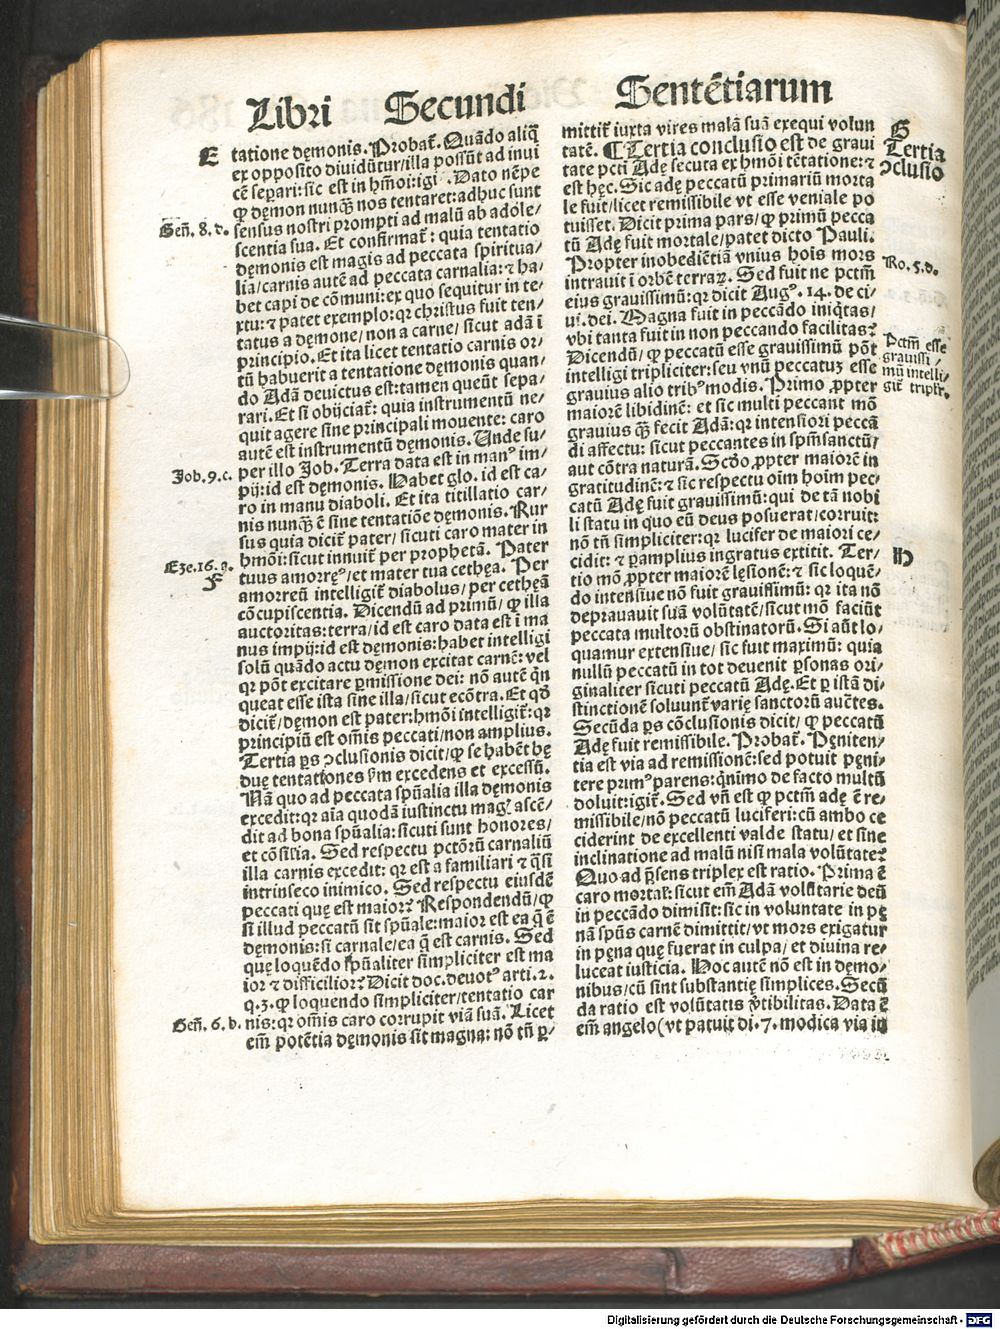 Libri Secundi Sentẽtiarum
E
tatione dęmonis. Probat̃. Quãdo aliq̃
ex opposito diuidũtur/illa possũt ad inui
cẽ separi: sic est in hm̃oi: igi . Dato nẽpe
ꝙ dęmon nunq̃ȝ nos tentaret: adhuc sunt
Geñ. 8. d.
sensus nostri prompti ad malũ ab adole/
scentia sua. Et confirmat̃: quia tentatio
dęmonis est magis ad peccata spiritua/
lia/carnis autẽ ad peccata carnalia: ⁊ ha/
bet capi de cõmuni: ex quo sequitur in te/
xtu: ⁊ patet exemplo: qr christus fuit ten/
tatus a dęmone/non a carne/sicut adã ĩ
principio. Et ita licet tentatio carnis or/
tũ habuerit a tentatione dęmonis quan/
do Adã deuictus est: tamen queũt sepa/
rari. Et si obijciat̃: quia instrumentũ ne/
quit agere sine principali mouente: caro
autẽ est instrumentũ dęmonis. Unde su/
Job. 9. c.
per illo Job. Terra data est in man⁹ im/
pij: id est dęmonis. Habet glo. id est ca/
ro in manu diaboli. Et ita titillatio car/
nis nunq̃ȝ ẽ sine tentatiõe dęmonis. Rur
sus quia dicit̃ pater/sicuti caro mater in
hmõi: sicut innuit̃ per prophetã. Pater
Eze. 16. a.
F
tuus amorręꝰ/et mater tua cethęa. Per
amorreũ intelligit̃ diabolus/per cethęã
cõcupiscentia. Dicendũ ad primũ/ꝙ illa
auctoritas: terra/id est caro data est ĩ ma
nus impij: id est dęmonis: habet intelligi
solũ quãdo actu dęmon excitat carnẽ: vel
qr põt excitare ꝑmissione dei: nõ autẽ q̇n
queat esse ista sine illa/sicut ecõtra. Et qđ
dicit̃/dęmon est pater: hmõi intelligit̃: qr
principiũ est om̃is peccati/non amplius.
Tertia ꝑs ↄclusionis dicit/ꝙ se habẽt hę
duę tentatiões ẜm excedens et excessũ.
Nã quo ad peccata spũalia illa dęmonis
excedit: qr aĩa quodã iustinctu magꝰ ascẽ/
dit ad bona spũalia: sicuti sunt honores/
et cõsilia. Sed respectu pctõrũ carnaliũ
illa carnis excedit: qr est a familiari ⁊ q̃si
intrinseco inimico. Sed respectu eiusdẽ
peccati quę est maior? Respondendũ/ꝙ
si illud peccatũ sit spũale: maior est ea q̃ ẽ
dęmonis: si carnale/ea q̃ est carnis. Sed
quę loquẽdo spũaliter simpliciter est ma
ior ⁊ difficilior? Dicit doc. deuotꝰ arti. 2.
q. 3. ꝙ loquendo simpliciter/tentatio car
Geñ. 6. b.
nis: qr om̃is caro corrupit viã suã. Licet
em̃ potẽtia dęmonis sit magna: nõ tñ ꝑ/
mittit̃ iuxta vires malã suã exequi volun
G
tatẽ. ¶ Tertia conclusio est de graui
Tertia
ↄclusio
tate pcti Adę secuta ex hmõi tẽtatione: ⁊
est hęc. Sic adę peccatũ primariũ morta
le fuit/licet remissibile vt esse veniale po
tuisset. Dicit prima pars/ꝙ primũ pecca
tũ Adę fuit mortale/patet dicto Pauli.
Ro. 5. d.
Propter inobediẽtiã vnius hoĩs mors
intrauit ĩ orbẽ terraꝝ. Sed fuit ne pctm̃
eius grauissimũ: qr dicit Augꝰ. 14. de ci/
ui. dei. Magna fuit in peccãdo iniq̇tas/
vbi tanta fuit in non peccando facilitas?
Pctm̃ esse
grauissi/
mũ intelli/
git̃ tripľr.
Dicendũ/ꝙ peccatũ esse grauissimũ põt
intelligi tripliciter: seu vnũ peccatuȝ esse
grauius alio tribꝰ modis. Primo ꝓpter
maiorẽ libidinẽ: et sic multi peccant mõ
grauius q̃ȝ fecit Adã: qr intensiori peccã
di affectu: sicut peccantes in spm̃ sanctũ/
aut cõtra naturã. Scđo ꝓpter maiorẽ in
gratitudinẽ: ⁊ sic respectu oĩm hoĩm pec/
catũ Adę fuit grauissimũ: qui de tã nobi
li statu in quo eũ deus posuerat/corruit:
nõ tñ simpliciter: qr lucifer de maiori ce/
H
cidit: ⁊ ꝑamplius ingratus extitit. Ter/
tio mõ ꝓpter maiorẽ lęsionẽ: ⁊ sic loquẽ/
do intensiue nõ fuit grauissimũ: qr ita nõ
deprauauit suã volũtatẽ/sicut mõ faciũt
peccata multorũ obstinatorũ. Si aũt lo/
quamur extensiue/sic fuit maximũ: quia
nullũ peccatũ in tot deuenit ꝑsonas ori/
ginaliter sicuti peccatũ Adę. Et ꝑ istã di/
stinctionẽ soluunt̃ varię sanctorũ auc̃tes.
Secũda ꝑs cõclusionis dicit/ꝙ peccatũ
Adę fuit remissibile. Probat̃. Pęniten/
tia est via ad remissionẽ: sed potuit pęni/
tere primꝰ parens: q̇nimo de facto multũ
doluit: igit̃. Sed vñ est ꝙ pctm̃ adę ẽ re/
missibile/nõ peccatũ luciferi: cũ ambo ce
ciderint de excellenti valde statu/et sine
inclinatione ad malũ nisi mala volũtate?
Quo ad p̃sens triplex est ratio. Prima ẽ
caro mortal̃: sicut em̃ Adã volũtarie deũ
in peccãdo dimisit: sic in voluntate in pę
nã spũs carnẽ dimittit/vt mors exigatur
in pęna quę fuerat in culpa/et diuina re/
luceat iusticia. Hoc autẽ nõ est in dęmo/
nibus/cũ sint substantię simplices. Secũ
da ratio est volũtatis v̉tibilitas. Data ẽ
em̃ angelo (vt patuit di. 7. modica via in
Digitalisierung gefördert durch die Deutsche Forschungsgemeinschaft - DFG